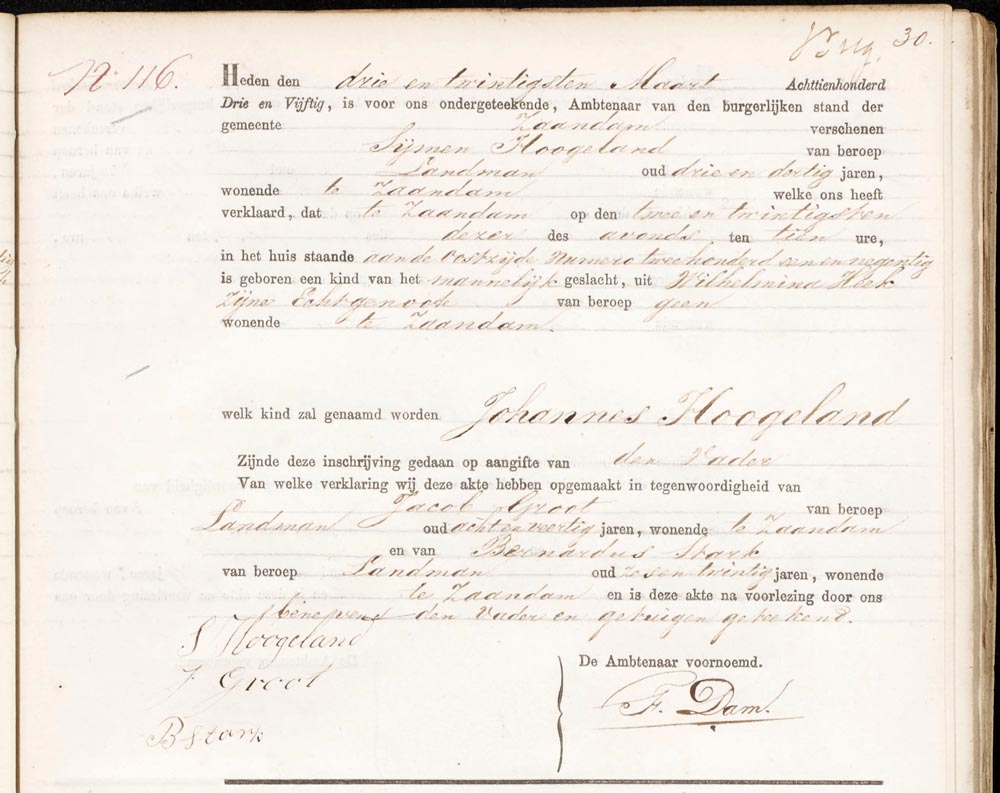 30.
No. 116.
Heden den drie en twintigsten Maart Achttienhonderd
Drie en Vijftig, is voor ons ondergeteekende, Ambtenaar van den burgerlijken stand der
gemeente Zaandam verschenen
Sijmen Hoogeland van beroep
Landman oud drie en dertig jaren,
wonende te Zaandam welke ons heeft
verklaard, dat te Zaandam op den twee en twintigsten
dezer des avonds ten tien ure,
in het huis staande aan de Oostzijde Numero tweehonderd een en negentig
is geboren een kind van het mannelijk geslacht, uit Wilhelmina Heek
Zijne Echtgenoote van beroep geen
wonende te Zaandam.
welk kind zal genaamd worden Johannes Hoogeland
Zijnde deze inschrijving gedaan op aangifte van den Vader
Van welke verklaring wij deze akte hebben opgemaakt in tegenwoordigheid van
Jacob Groot van beroep
Landman oud acht en veertig jaren, wonende te Zaandam
en van Bernardus Stark
van beroep Landman oud zes en twintig jaren, wonende
te Zaandam en is deze akte na voorlezing door ons
benevens den Vader en getuigen getekend.
S Hoogeland
J Groot
B Stark
De Ambtenaar voornoemd.
F. Dam.